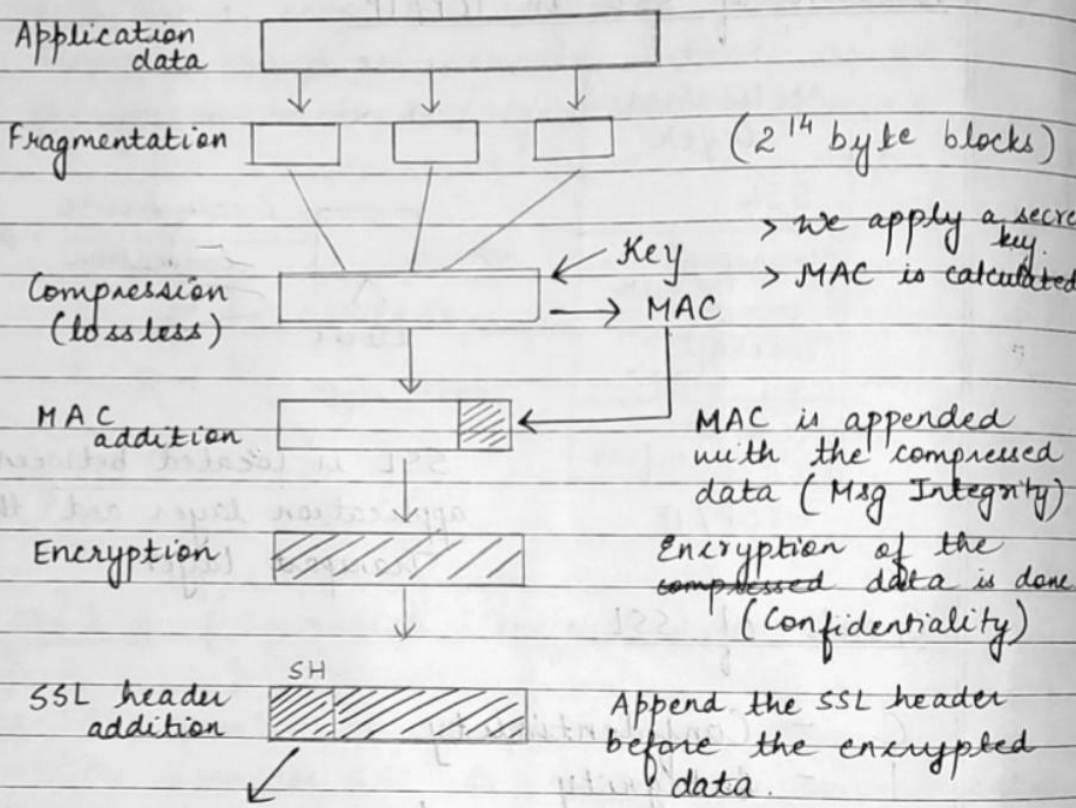 Application
data
Fragmentation
(2^14 byte blocks)
> we apply a secre
key.
Key
> MAC is calculated
Compression
(lossless)
MAC
MAC
addition
MAC is appended
with the compressed
data (Msg Integrity)
Encryption
Encryption of the
compressed data is done
(Confidentiality)
SH
SSL header
addition
Append the SSL header
before the encrypted
data.